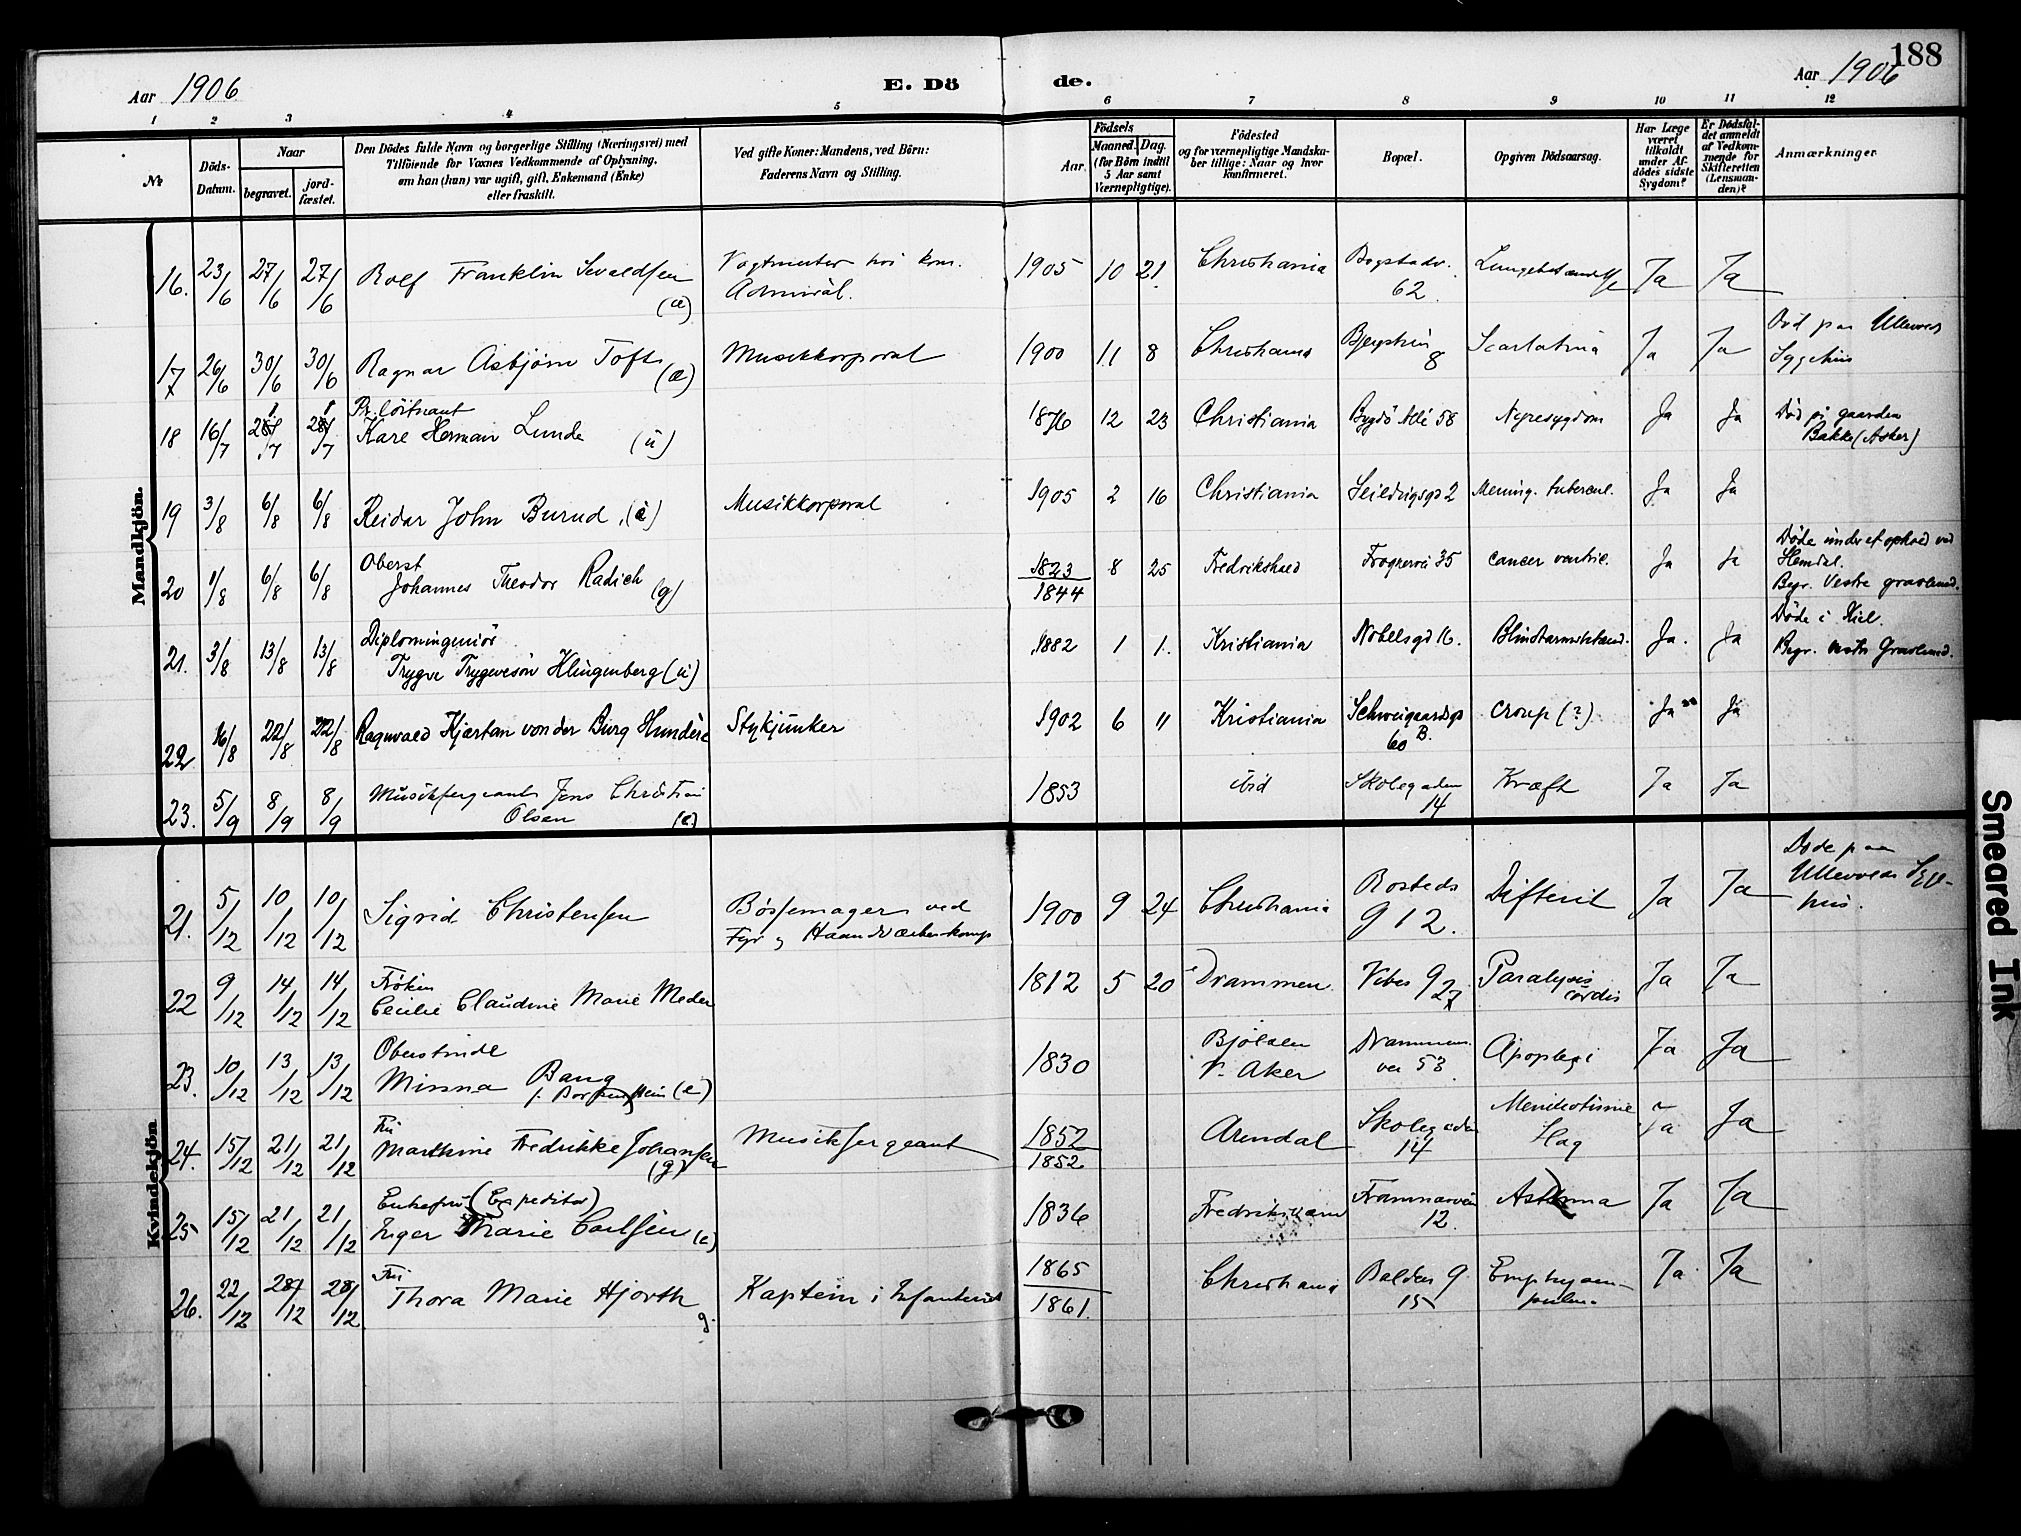 188
Aar 1906
E. Dö de.
Aar 1906
1 2 3 4 5 6 7 8 9 10 11 12
№
Döds-Datum.
Naar
begravet.
jord-fæstet.
Den Dödes fulde Navn og borgerlige Stilling (Næringsvei) med
Tilföiende for Voxnes Vedkommende af Oplysning,
om han (hun) var ugift, gift, Enkemand (Enke)
eller fraskilt.
Ved gifte Koner: Mandens, ved Börn:
Faderens Navn og Stilling.
Födsels
Aar.
Maaned. Dag.
(for Börn indtil
5 Aar samt
Værnepligtige).
Födested
og for værnepligtige Mandska-
ber tillige: Naar og hvor
konfirmeret.
Bopæl.
Opgiven Dödsaarsag.
Har Læge
været
tilkaldt
under Af-
dödes sidste
Sygdom?
Er Dödsfal-
det anmeldt
af Vedkom-
mende for
Skifteretten
(Lensman-
den)?
Anmærkninger
Mandkjön.
16. 23/6 27/6 27/6 Rolf Franklin Sevaldsen
Admiral. 1905 10 21 Christiania Bogstadv. 62 Ja Ja
17 26/6 30/6 30/6 Ragnar Asbjørn Tofte Musikkorporal 1900 11 8 Christiania 8 Scarlatina Ja Ja Død paa Ullevaal
Sygehus
Pr. löitnant
18 16/7 Kare Herman Lunde (u) 1876 12 23 Christiania Bygdö Allé 58 Nyresygdom Ja Ja Död på gaarden
Bakke (Asker)
19 3/8 6/8 6/8 Reidar John Burud. Musikkorporal 1905 2 16 Christiania 2 Mening. tubercul. Ja Ja
Oberst
20 1/8 6/8 6/8 Johannes Theodor Radich (g) 1823
1844 8 25 Fredrikshald Frognervei 35 cancer ventric. Ja Ja Döde under et ophold ved
Hemdal.
Begr. Vestre gravlund.
Diplomingeniör
21. 3/8 13/8 13/8 Trygve Trygvesön Klingenberg (u) 1882 1 1. Kristiania Nobelsgd 16. Ja. Ja Döde i Kiel.
Begr. vestre Gravlund.
22 16/8 22/8 22/8 Ragnvald Kjartan von der Burg Hundere Stykjunker 1902 6 11 Kristiania Schweigaardsgd
60 B. croup (?) Ja Ja
23. 5/9 8/9 8/9 Musiksergeant Jens Christian
Olsen 1853 Skolegaden
14 Kræft Ja Ja
Kvindekjön
21. 5/12 10/12 10/12 Sigrid Christensen Bøssemager ved
Fgr og Haandværkerkomp 1900 9 24 Christiania Rosteds
g 12. Difterit Ja Ja Døde paa
Ullevolds Syge-
hus.
Frøken
22 9/12 14/12 14/12 Cecilie Claudine Marie Meder 1812 5 20 Drammen Vibes g 27 Paralysis
cordis Ja Ja
Oberstinde
23. 10/12 13/12 13/12 Minna Bang
1830 Bjølsen
V. Aker Drammens
vei 53 Apoplexi Ja Ja
Fru
24. 15/12 21/12 21/12 Marthine Fredrikke Johansen
(g) Musiksergeant 1852
1852 Arendal Skolegaden
14 Slag Ja Ja
Enkefru (Expeditør)
25 15/12 21/12 21/12 Inger Marie Carlsen (e) 1836 Fredriksværn Framnæsvein
12. Asthma Ja Ja
Fru
26. 22/12 28/12 28/12 Thora Marie Hjorth
g. Kaptein i Infanteriet 1865
1861. Christiania Balders g
15 Emphysem
pulm. Ja Ja
Smeared Ink